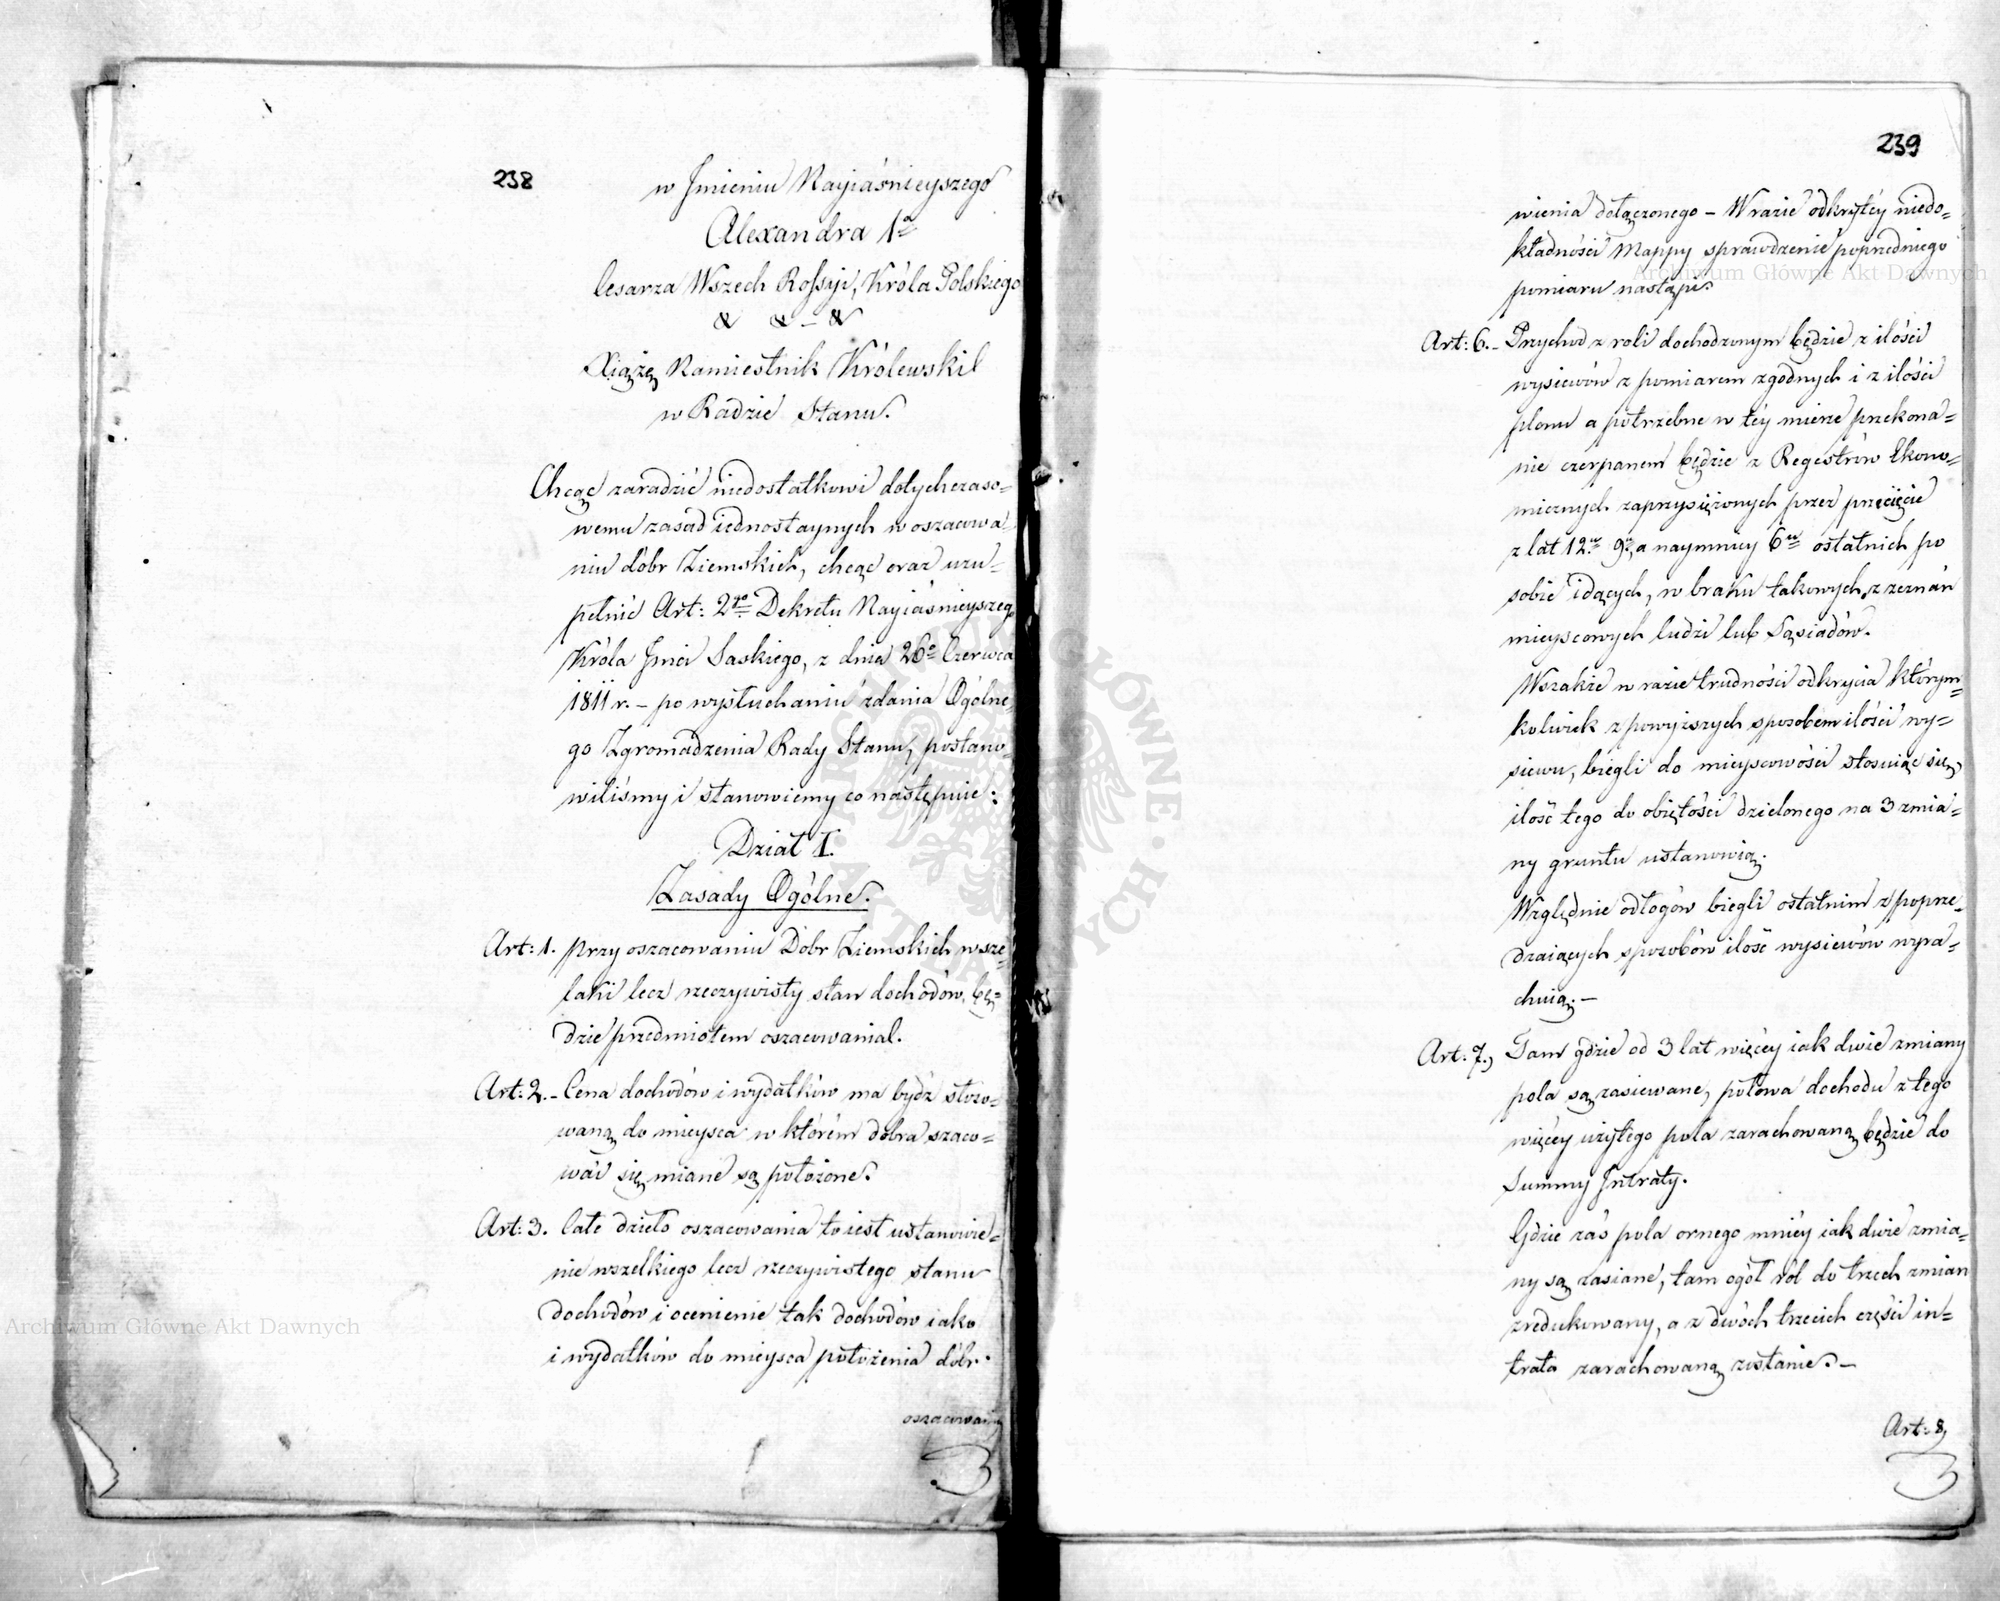 238
w Jmieniu Nayiásnieyszego
Alexandra 1o
Cesarza Wszech Rossyi, Króla Polskiego
& & – &
Xiążę Namiestnik Królewski
w Radzie Stanu.
Chcąc zaradzić niedostatkowi dotychczaso-
wemu zasad iednostaynych w oszacowa-
niu dóbr Ziemskich, chcąc oraz uzu-
pełnić Art: 2go Dekretu Nayiasnieyszego
Króla Jmci Saskiego, z dnia 26o Czerwca
1811 r. – po wysłuchaniu zdania Ogólne-
go Zgromadzenia Rady Stanu, postano-
wiliśmy i stanowiemy co następuie:
Dział I.
Zasady Ogólne.
Art: 1. przy oszacowaniu Dóbr Ziemskich wsze-
laki lecz rzeczywisty stan dochodów, bę-
dzie przedmiotem oszacowania.
Art: 2. – Cena dochodów i wydatków ma bydź stoso-
waną do mieysca w którém dobra szaco-
wać się miane są położone.
Art: 3. Całe dzieło oszacowania to iest ustanowie-
nie wszelkiego lecz rzeczywistego stanu
dochodów i ocenienie tak dochodów iako
i wydatków do mieysca położenia dóbr.
oszacowany
239
wienia dołączonego – W razie odkrytéy niedo-
kładności Mappy sprawdzenie poprzedniego
pomiaru nastąpi.
Art: 6. – Przychod z roli dochodzonym będzie z ilości
wysiewów z pomiarem zgodnych i z ilości
plonu a potrzebne w téy mierze przekona-
nie czerpanem będzie z Regestrów Ekono-
micznych zaprzysiężonych przez przecięcie
z lat 12u 9u, a naymniéy 6u ostatnich po
sobie idących, w braku takowych, z zeznań
mieyscowych ludzi lub Sąsiadów.
Wszakże w razie trudności odkrycia którym-
kolwiek z powyższych sposobem ilości wy-
siewu, biegli do mieyscowości stosuiąc się,
ilość tego do obiętości dzielonego na 3 zmia-
ny gruntu ustanowią.
Względnie odłogów biegli ostatnim z poprze-
dzaiących sposobów ilość wysiewów wyra-
chuią. –
Art: 7. Tam gdzie od 3 lat więcéy iak dwie zmiany
pola są zasiewane, połowa dochodu z tego
więcéy użytego pola zarachowaną będzie do
Summy Jntraty.
Gdzie zaś pola ornego mniéy iak dwie zmia-
ny są zasiane, tam ogół ról do trzech zmian
zredukowany, a z dwóch trzecich części in-
trata zarachowaną zostanie. –
Art: 8,
Archiwum Główne Akt Dawnych
Archiwum Główne Akt Dawnych